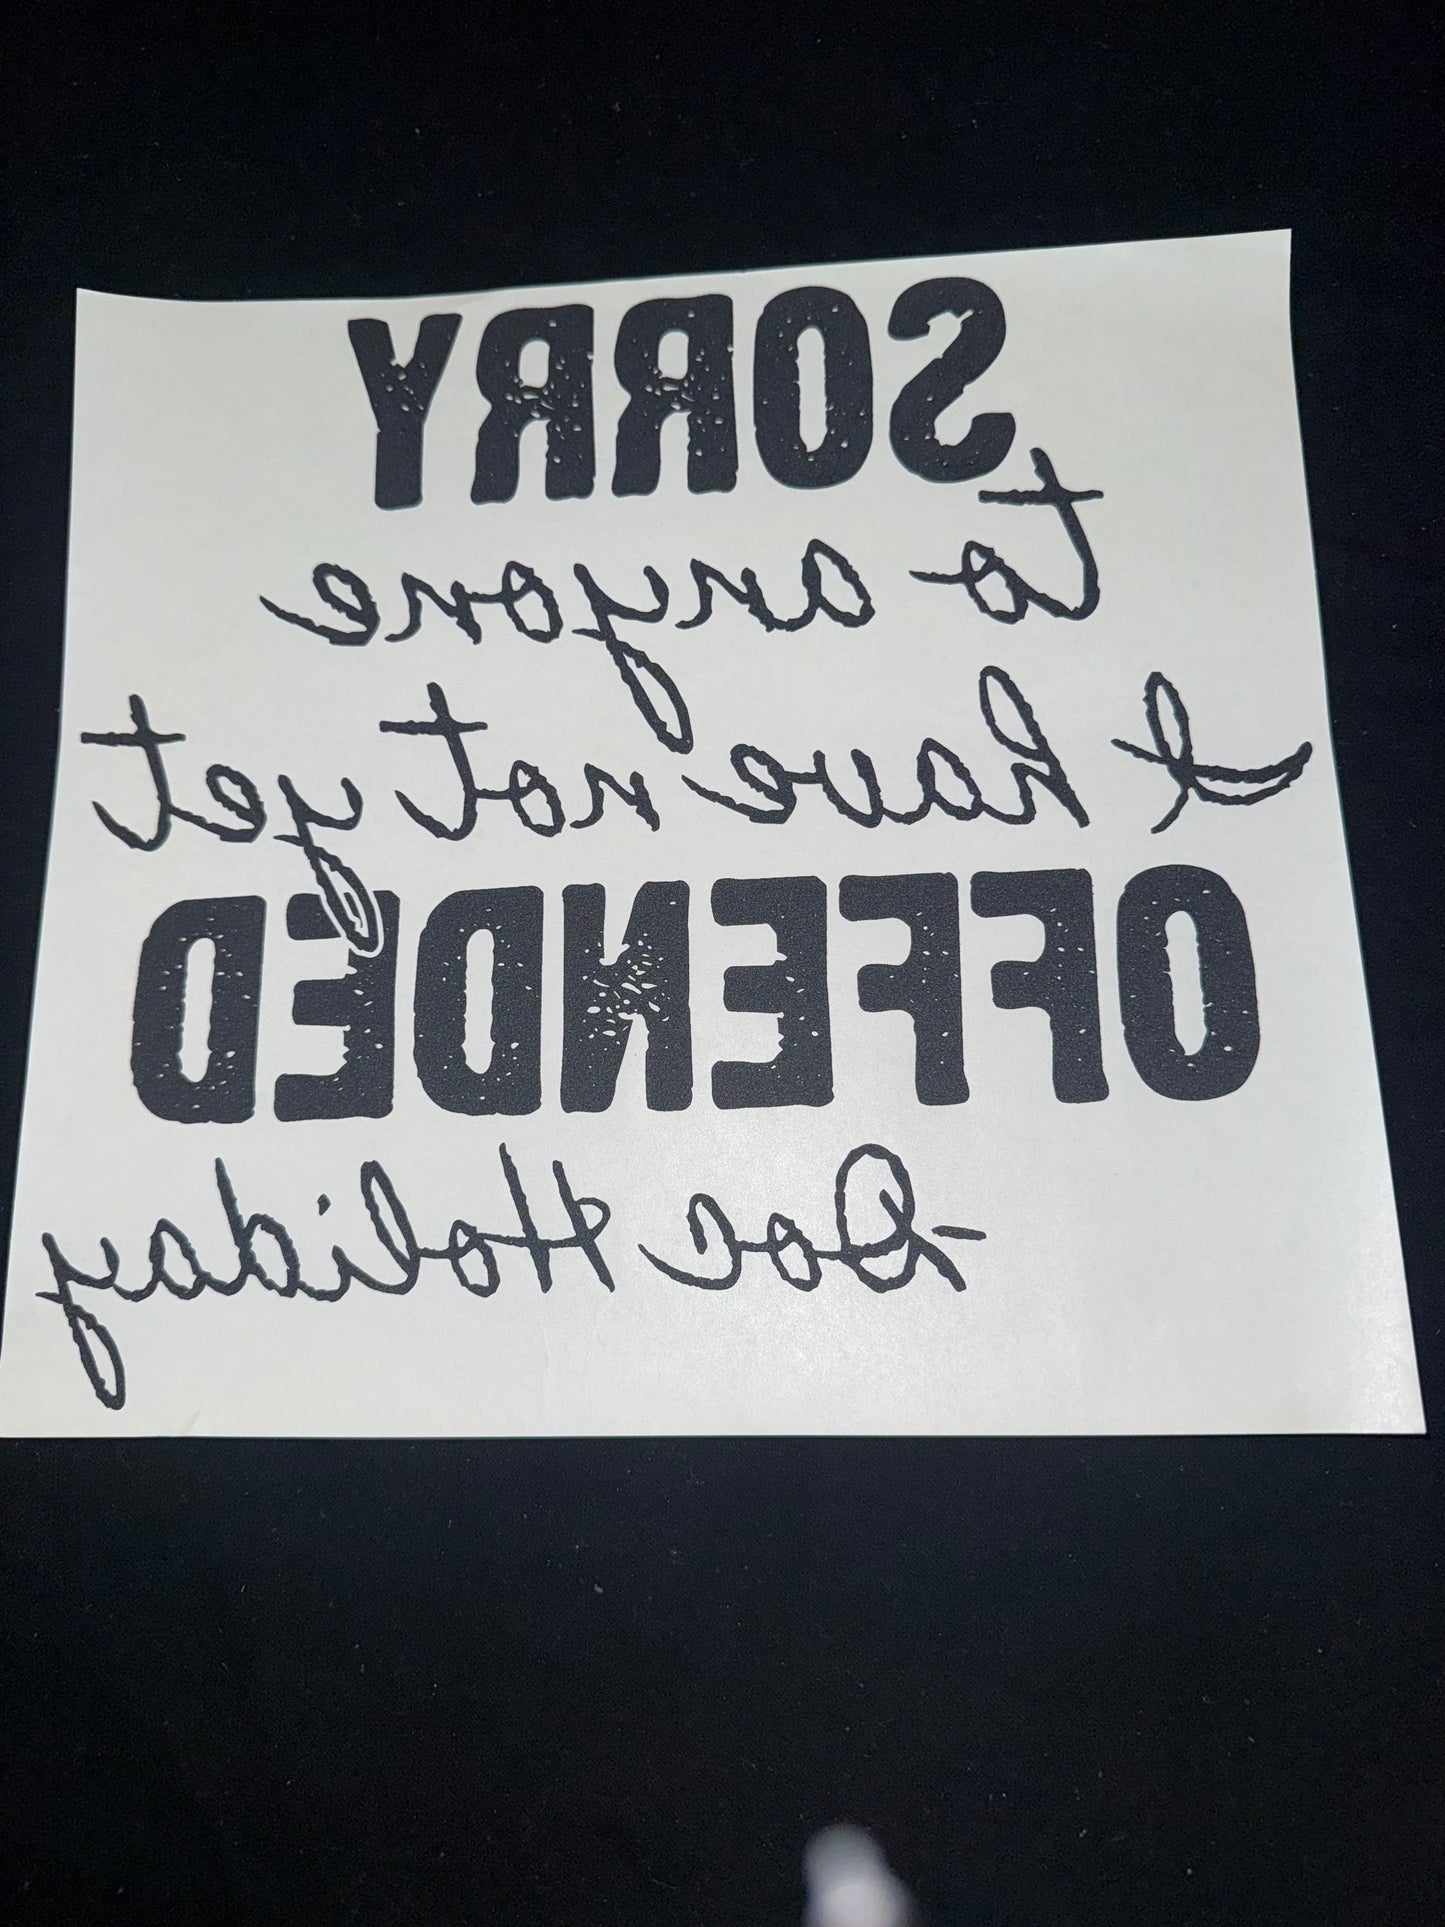 SORRY
to anyone
I have not yet
OFFENDED
-Doc Holiday